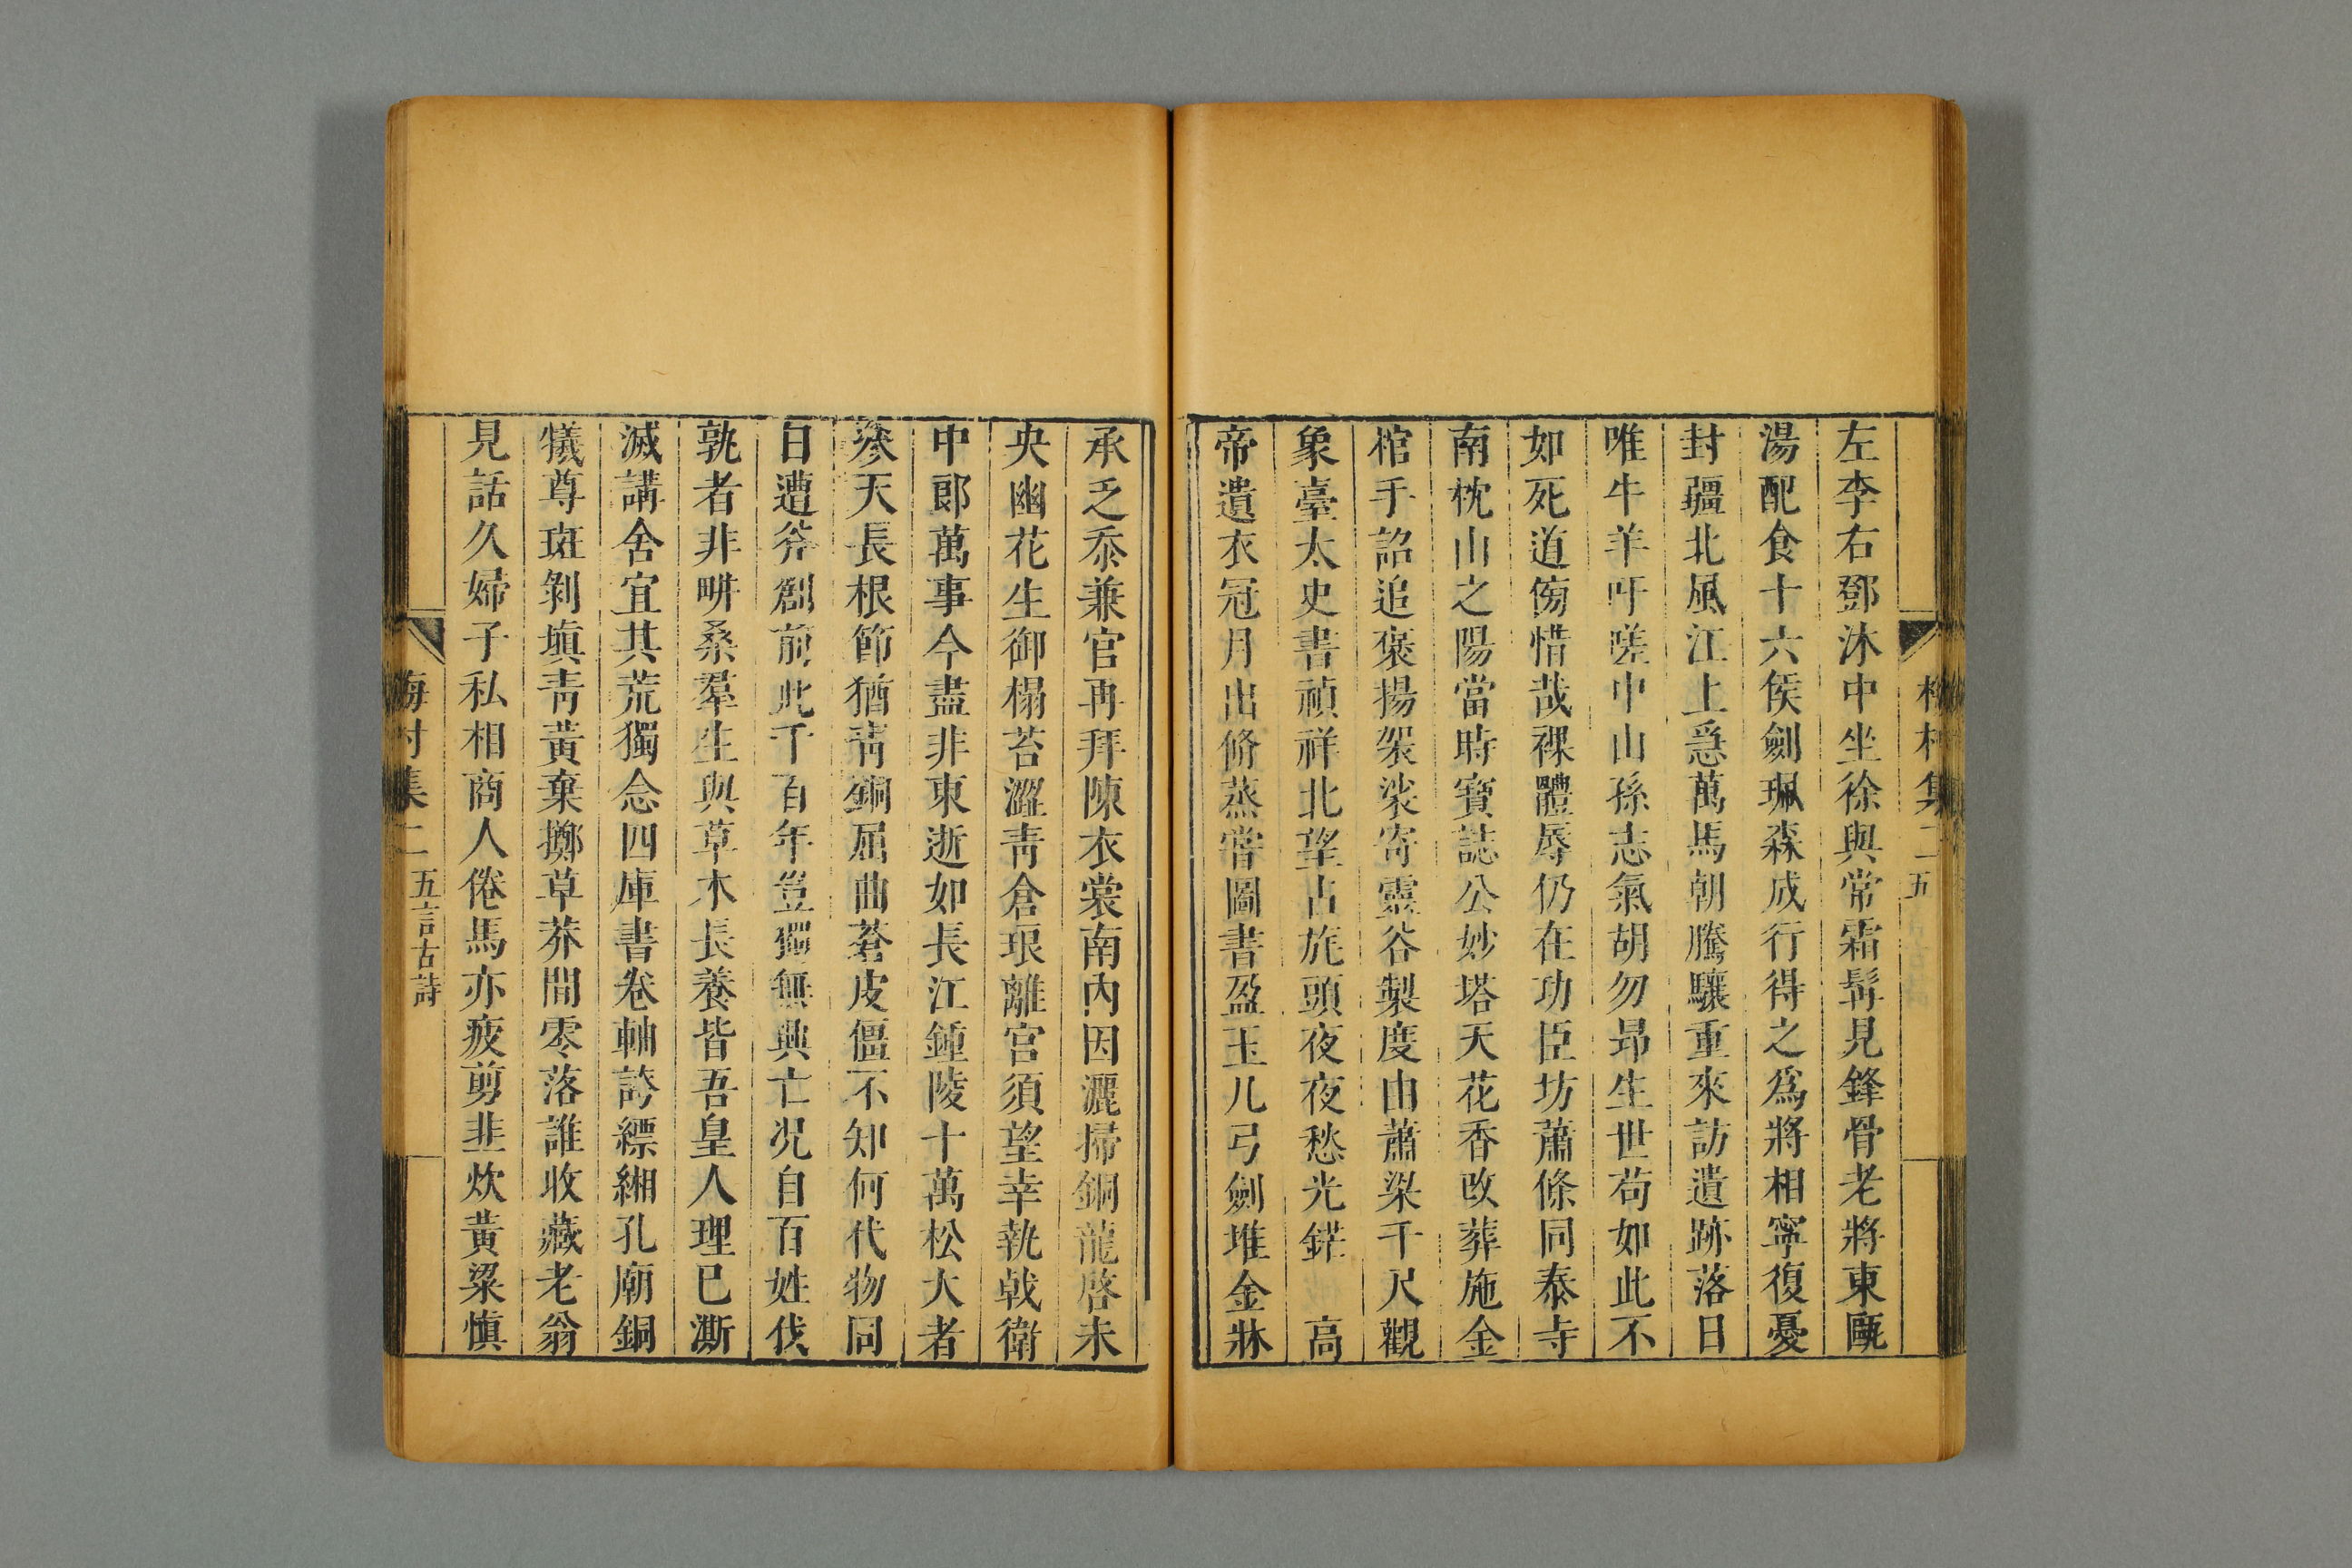 左李右鄧沐中坐徐與常霜髯見鋒骨老將東甌
湯配食十六侯劍珮森成行得之爲將相寧復憂
封疆北風江上急萬馬朝騰驤重來訪遺跡落日
唯牛羊吁嗟中山孫志氣胡勿昻生世苟如此不
如死道傍惜哉裸體辱仍在功臣坊蕭條同泰寺
南枕山之陽當時寶誌公妙塔天花香改葬施金
棺手詔追褒揚袈裟寄靈谷製度由蕭梁千尺觀
象臺太史書禎祥北望占旄頭夜夜愁光鋩　高
帝遺衣冠月出脩蒸嘗圖書盈玉几弓劍堆金牀
承乏忝兼官再拜陳衣裳南內因灑掃銅龍啓未
央幽花生御榻苔澀青倉琅離宮須望幸執戟衛
中郎萬事今盡非東逝如長江鍾陵十萬松大者
參天長根節猶青銅屈曲蒼皮僵不知何代物同
日遭斧創前此千百年豈獨無興亡况自百姓伐
孰者非畊桑羣生與草木長養皆吾皇人理已澌
滅講舍宜其荒獨念四庫書卷軸誇縹緗孔廟銅
犧尊斑剝塡靑黃棄擲草莽間零落誰收藏老翁
見話久婦子私相商人倦馬亦疲剪韭炊黃粱愼
梅村集二 五言古詩